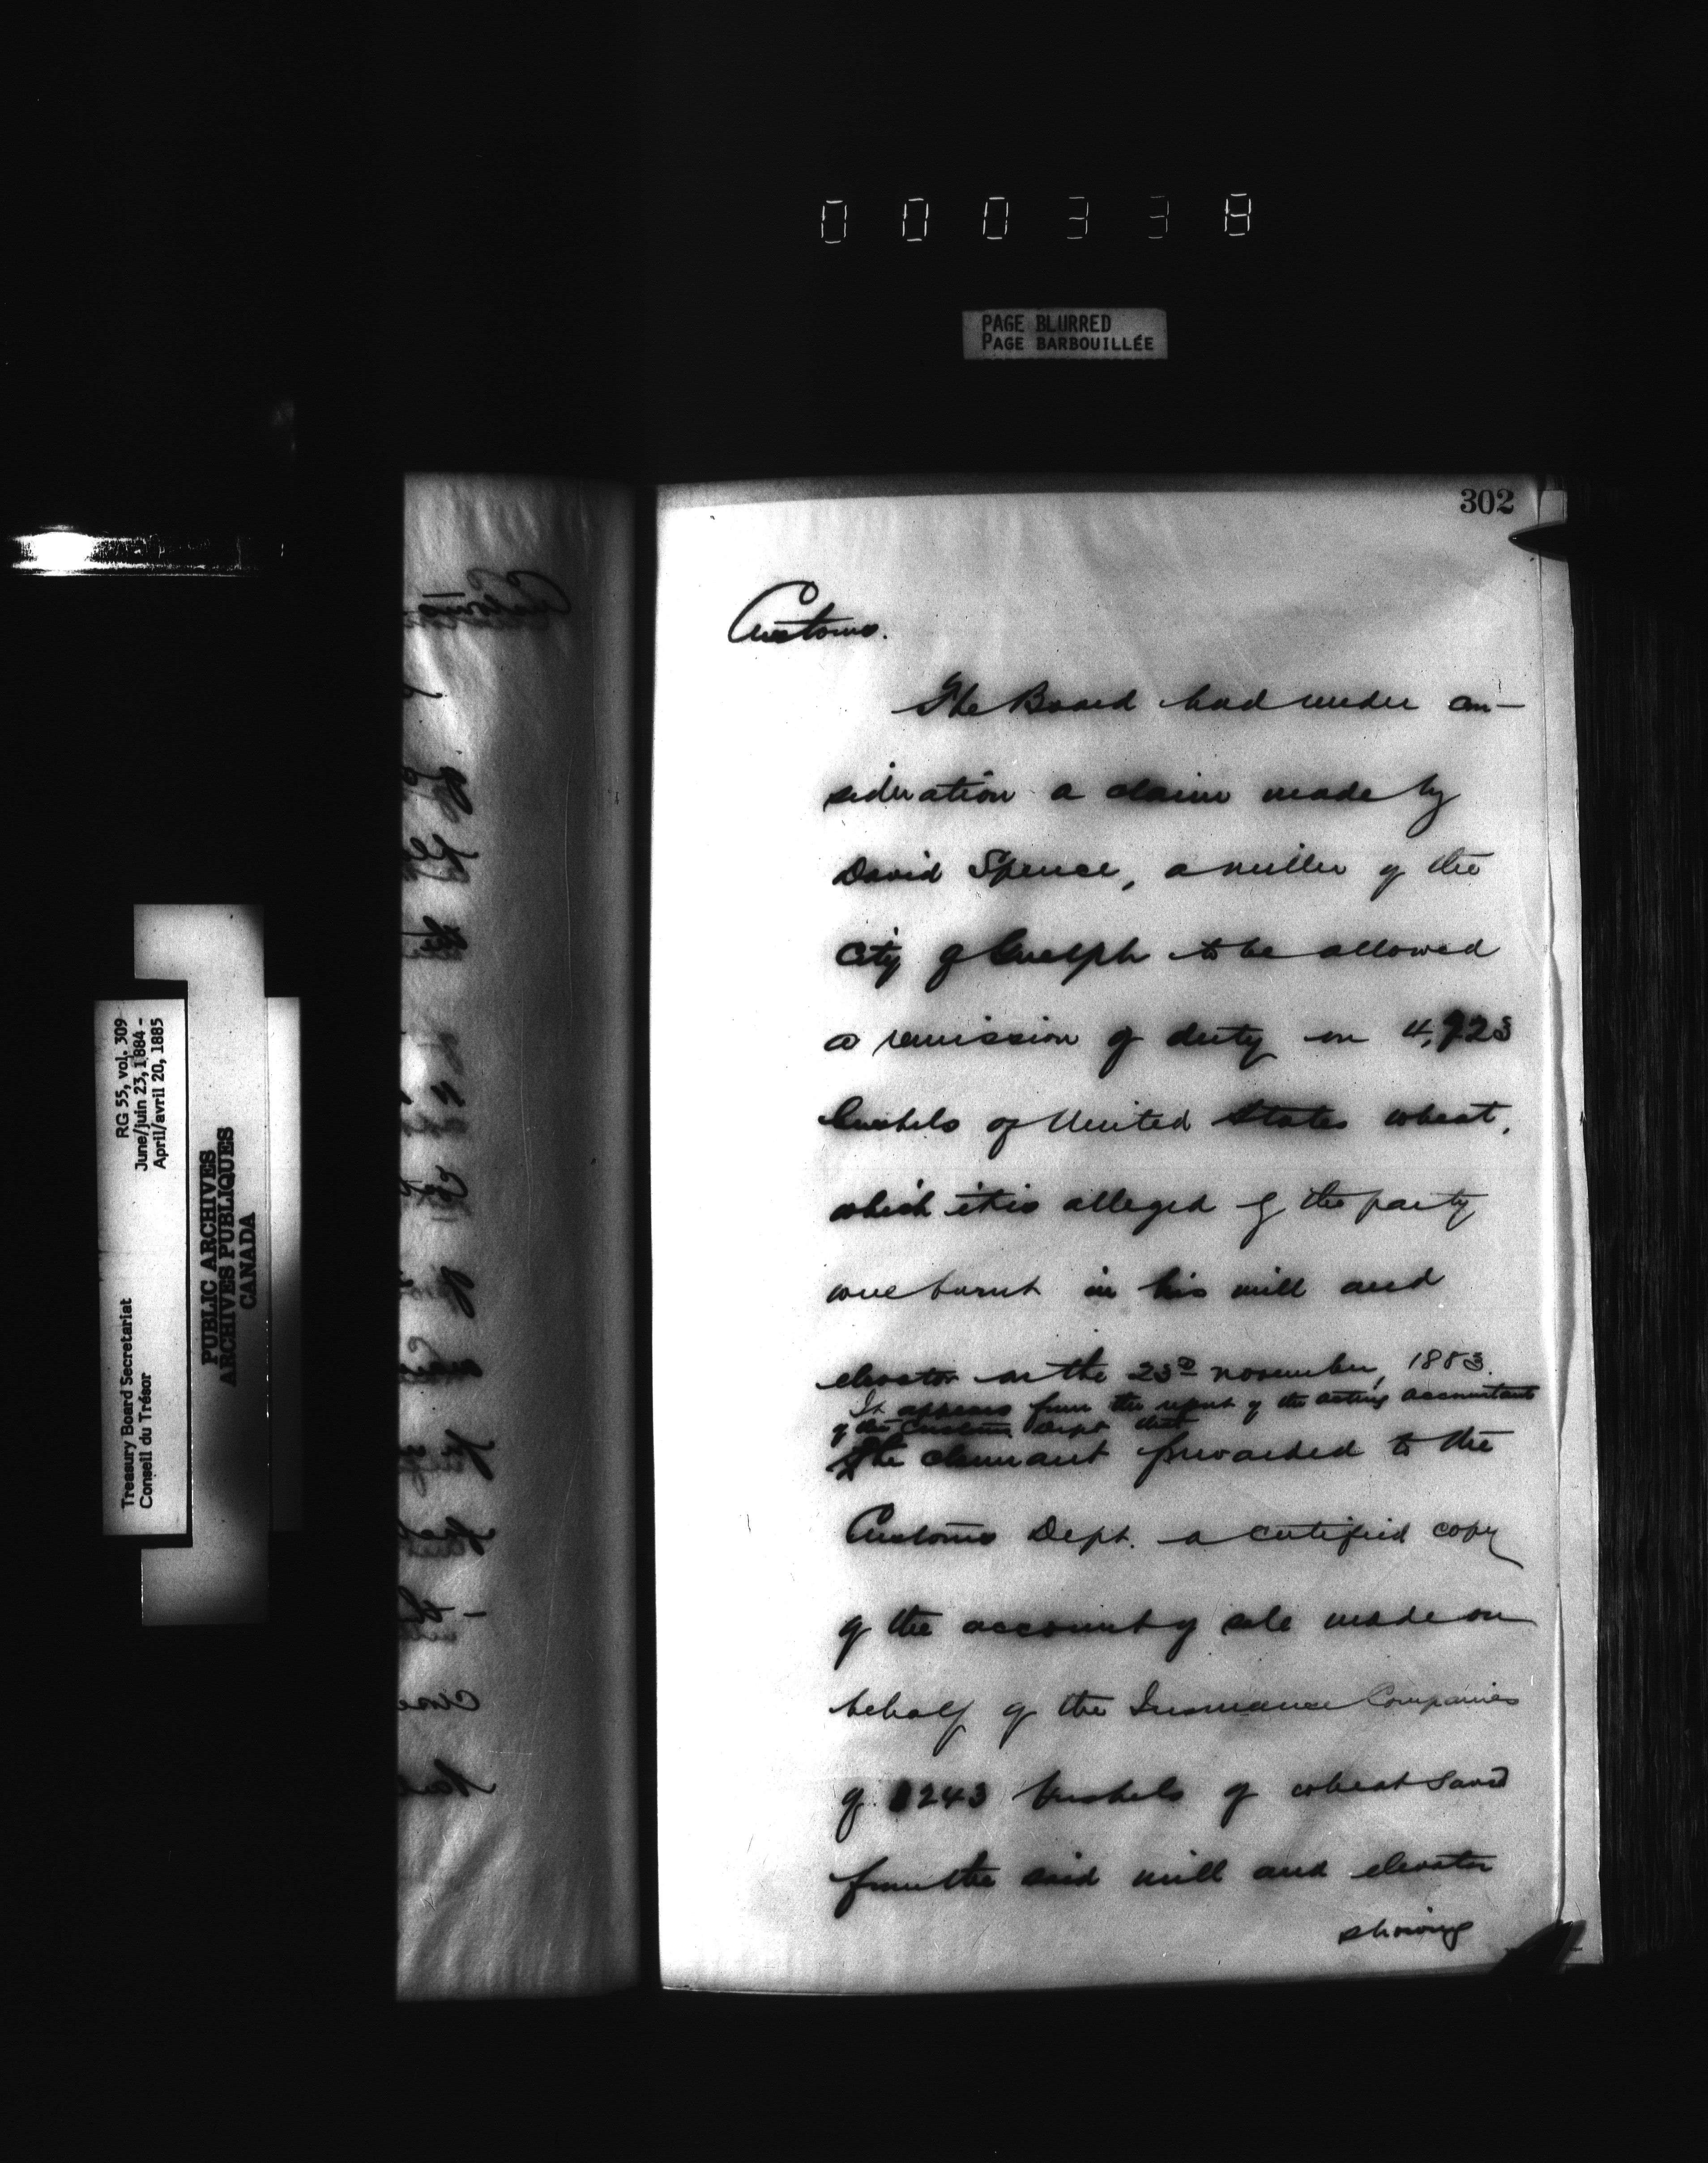 000338
PAGE BLURRED
PAGE BARBOUILLÉE
302
Customs.
The Board had under con-
sideration a claim made by
David Spence, a miller of the
City of Guelph to be allowed
a remission of duty on 4,923
bushels of United States wheat,
which it is alleged by the party
were burnt in his mill and
elevator on the 23rd November, 1883.
It appears from the report of the acting accountant
of the Customs Dept that
The claimant forwarded to the
Customs Dept. a certified copy
of the account of sale made on
behalf of the Insurance Companies
of 243 bushels of wheat saved
from the said mill and elevator
showing
RG 55, vol. 309
June/juin 23, 1884 -
April/avril 20, 1885
Treasury Board Secretariat
Conseil du Trésor
PUBLIC ARCHIVES
ARCHIVES PUBLIQUES
CANADA